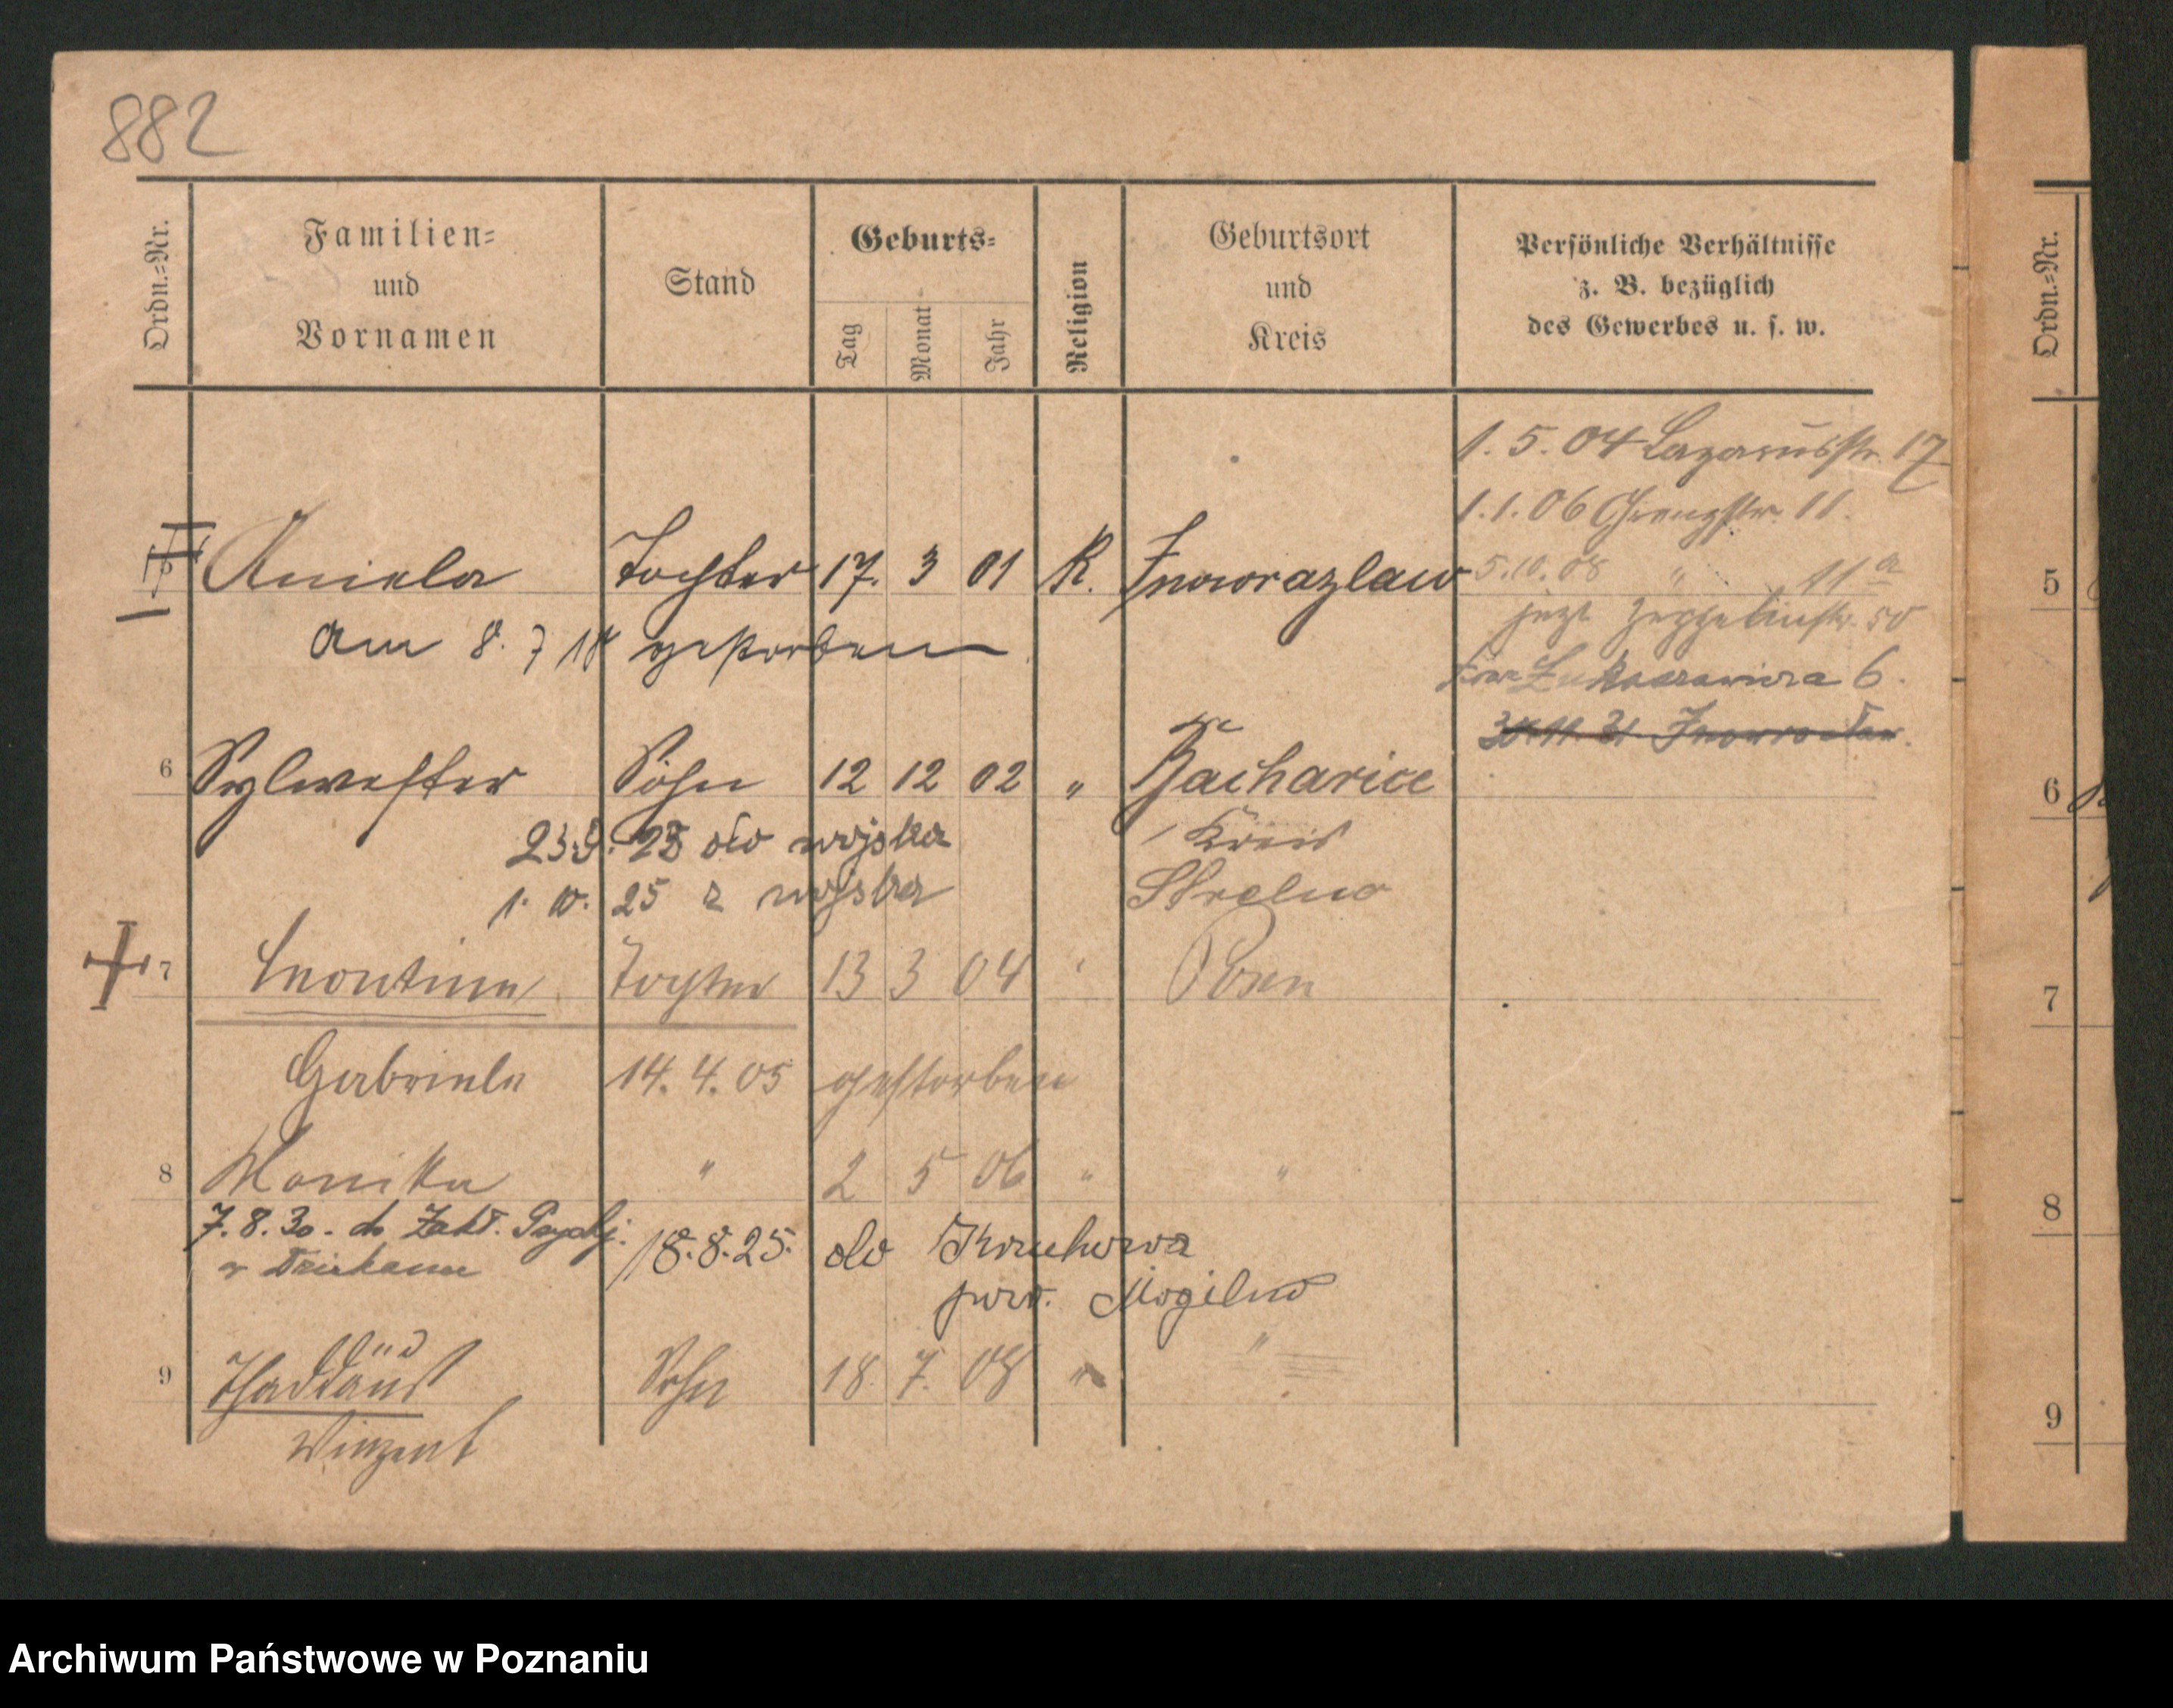 882
Ordn.=Nr.
Familien=
und
Vornamen
Stand
Geburts=
Tag
Monat
Jahr
Religion
Geburtsort
und
Kreis
Persönliche Verhältnisse
z. B. bezüglich
des Gewerbes u. s. w.
Ordn.=Nr.
1. 5. 04 Lazarusstr. 17
1. 1. 06 Grenzstr. 11.
Aniela Tochter 17. 3 01 R. Inowrazlaw
5.10.08 " 11a
5
am 8. 7 18 gestorben
jezt Zeppelinstr. 50
Łukaszewicza 6.
30.11.31 Inowrocław.
6 Sylwester Sohn 12 12 02 " Zacharice
6
23.9. 23 do wojska
Kreis
1. 10. 25 z wojska
Strelno
7 Leontine Tochter 13 3 04 " Posen
7
Gabriele 14. 4. 05 gestorben
8 Monika " 2 5 06 " "
8
7. 8. 30. do Zakł. Psychj.
w Dziekance
18.8.25. do Kruchowa
pow. Mogilno
9 Thaddäus Sohn 18. 7. 08 " "
9
Vinzent
Archiwum Państwowe w Poznaniu